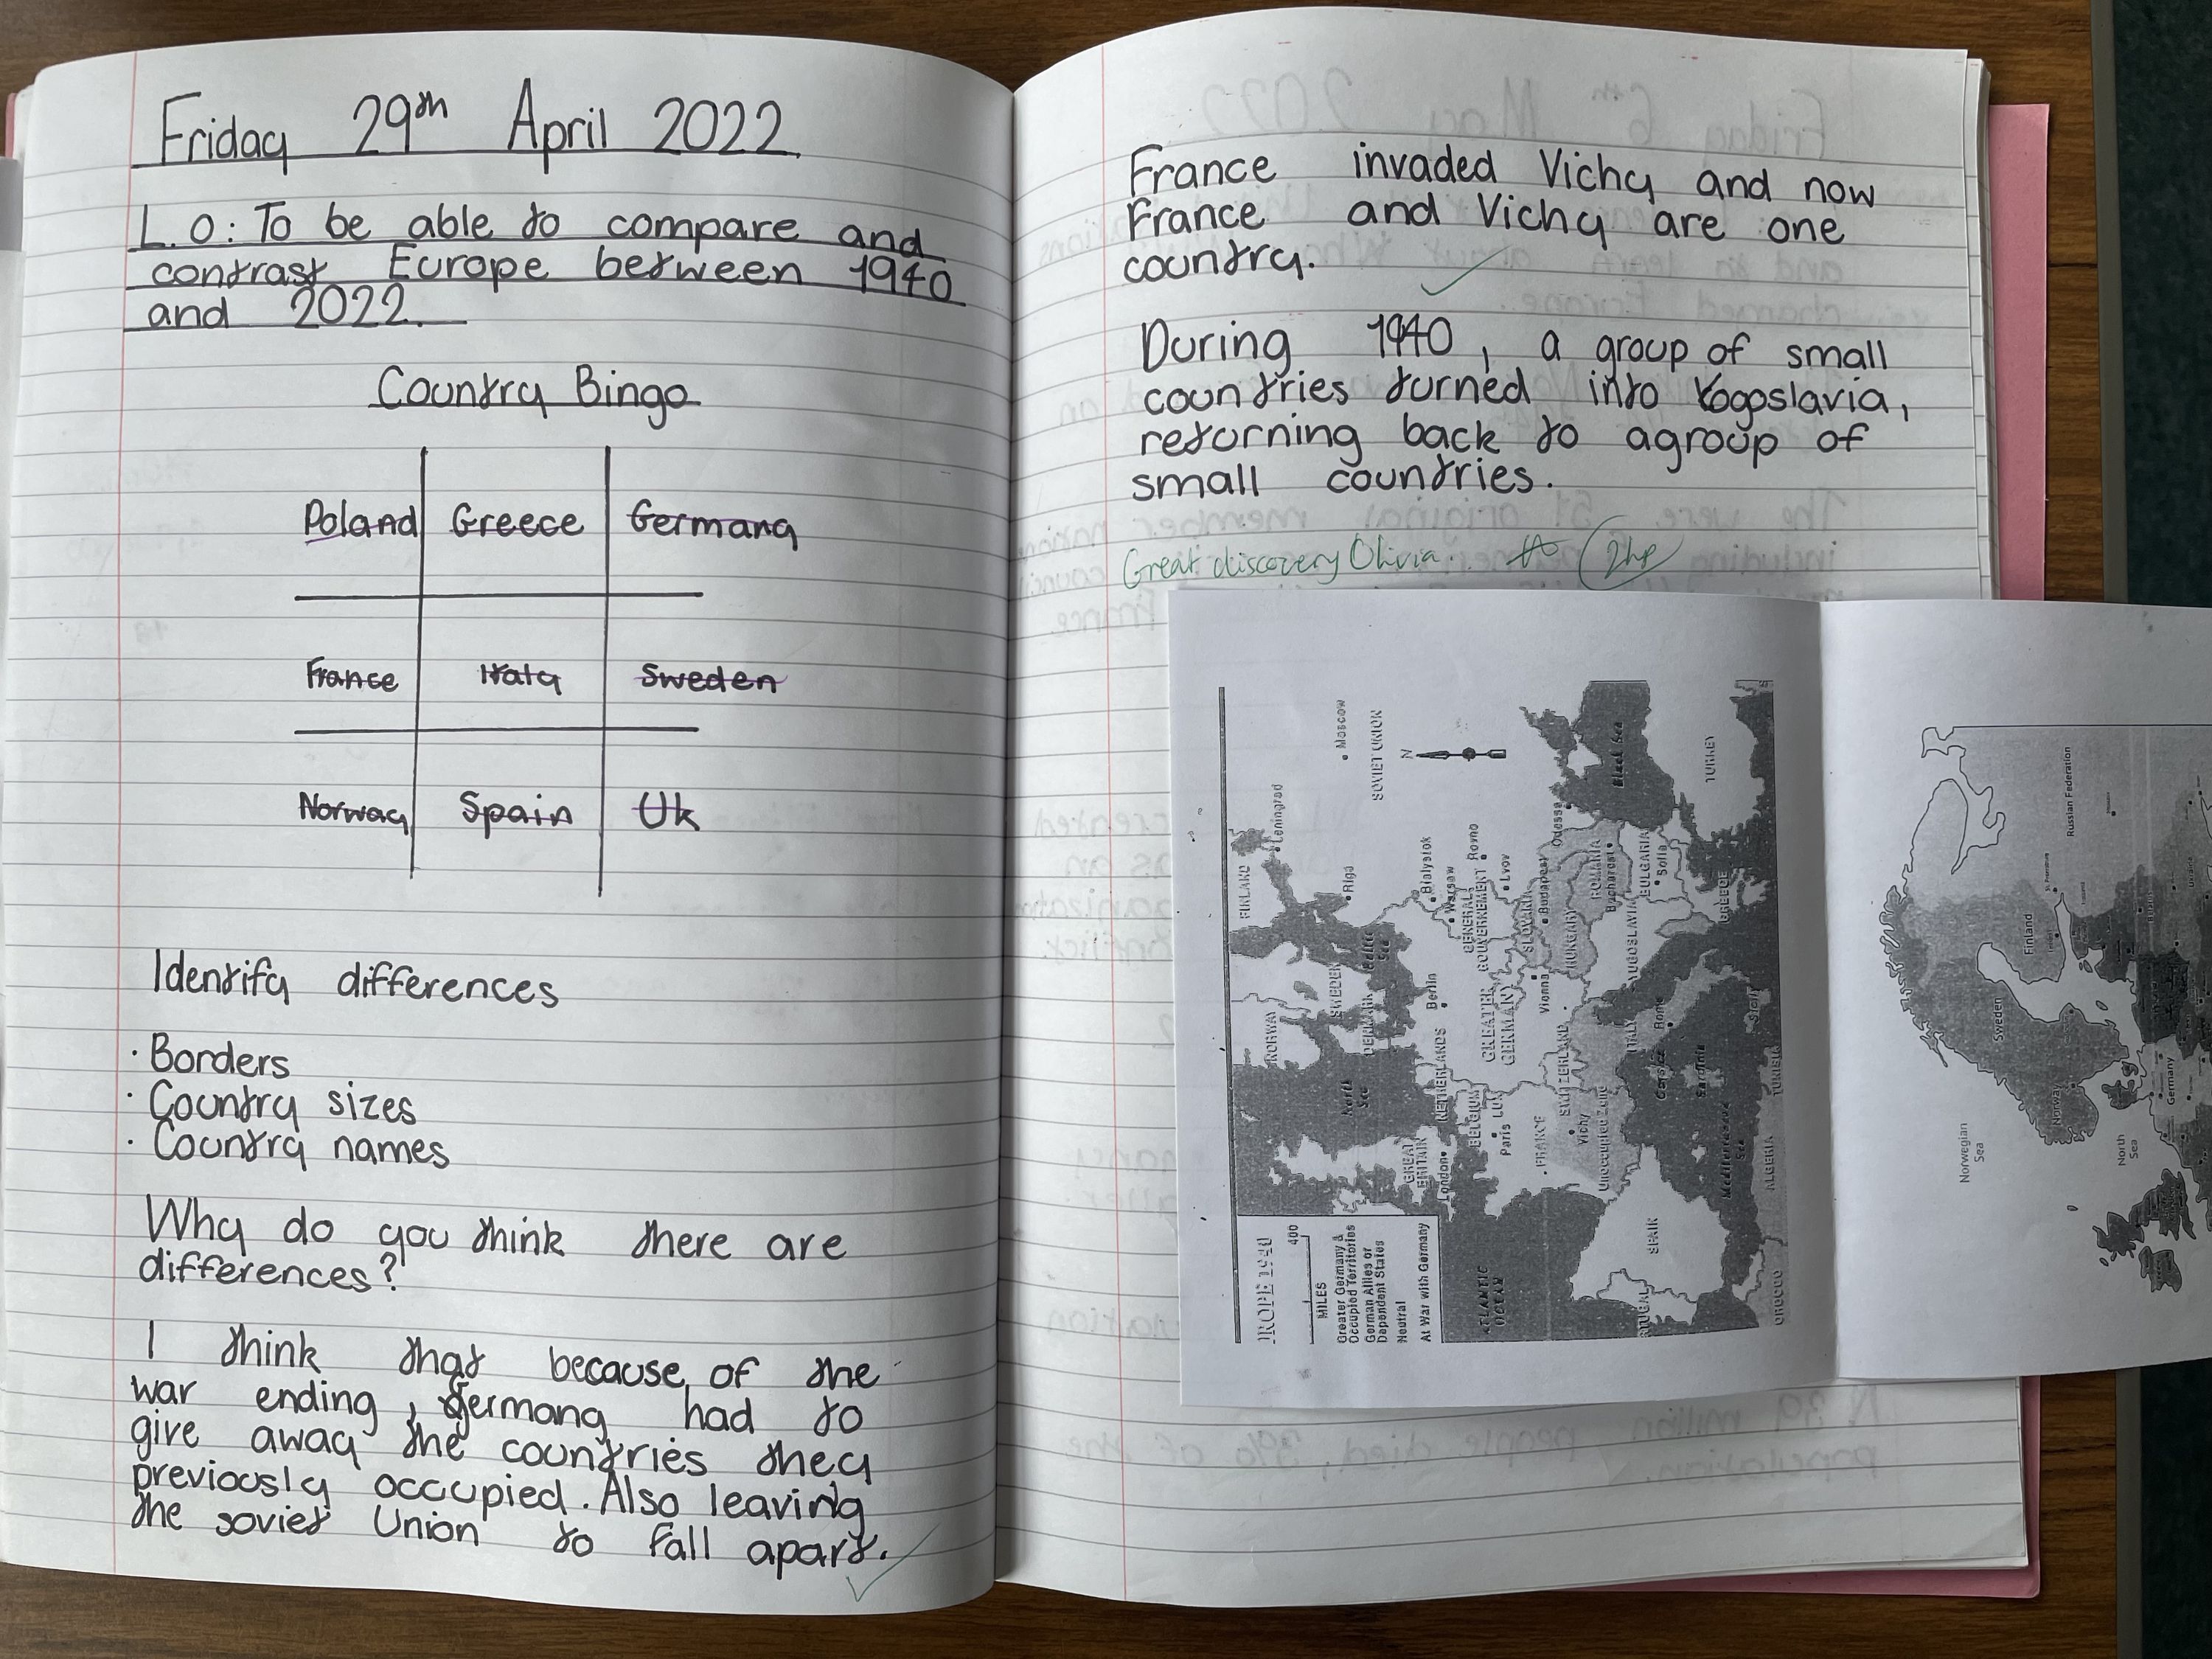 Friday 29th April 2022
L.O: To be able to compare and
contrast Europe between 1940
and 2022.
Country Bingo
Poland Greece Germany
France Italy Sweden
Norway Spain Uk
Identify differences
· Borders
· Country sizes
· Country names
Why do you think there are
differences?
I think that because of the
war ending, Germany had to
give away the countries they
previously occupied. Also leaving
the soviet Union to fall apart.
France invaded Vichy and now
France and Vichy are one
country.
During 1940, a group of small
countries turned into Yogoslavia,
returning back to agroup of
small countries.
Great discovery Olivia. 2hp
UROPE 1940
400
MILES
Greater Germany &
Occupied Territories
German Allies or
Dependent States
Neutral
At War with Germany
ATLANTIC
OCEAN
NORWAY
SWEDEN
FINLAND
Leningrad
Moscow
SOVIET UNION
N
Riga
Baltic
Sea
DENMARK
North
Sea
GREAT
BRITAIN
London
NETHERLANDS
BELGIUM
LUX
Paris
FRANCE
Vichy
Unoccupied Zone
SWITZERLAND
Berlin
GREATER
GERMANY
Bialystok
Warsaw
GENERAL
GOUVERNEMENT
Rovno
Lvov
SLOVAKIA
Vienna
Budapest
HUNGARY
Odessa
ROMANIA
Bucharest
BULGARIA
Sofia
YUGOSLAVIA
ITALY
Rome
Corsica
Sardinia
Sicily
GREECE
TURKEY
Black Sea
Mediterranean
Sea
SPAIN
RTUGAL
OROCCO
ALGERIA
TUNISIA
Norwegian
Sea
North
Sea
Norway
Sweden
Finland
Russian Federation
St. Petersburg
Germany
Ukraine